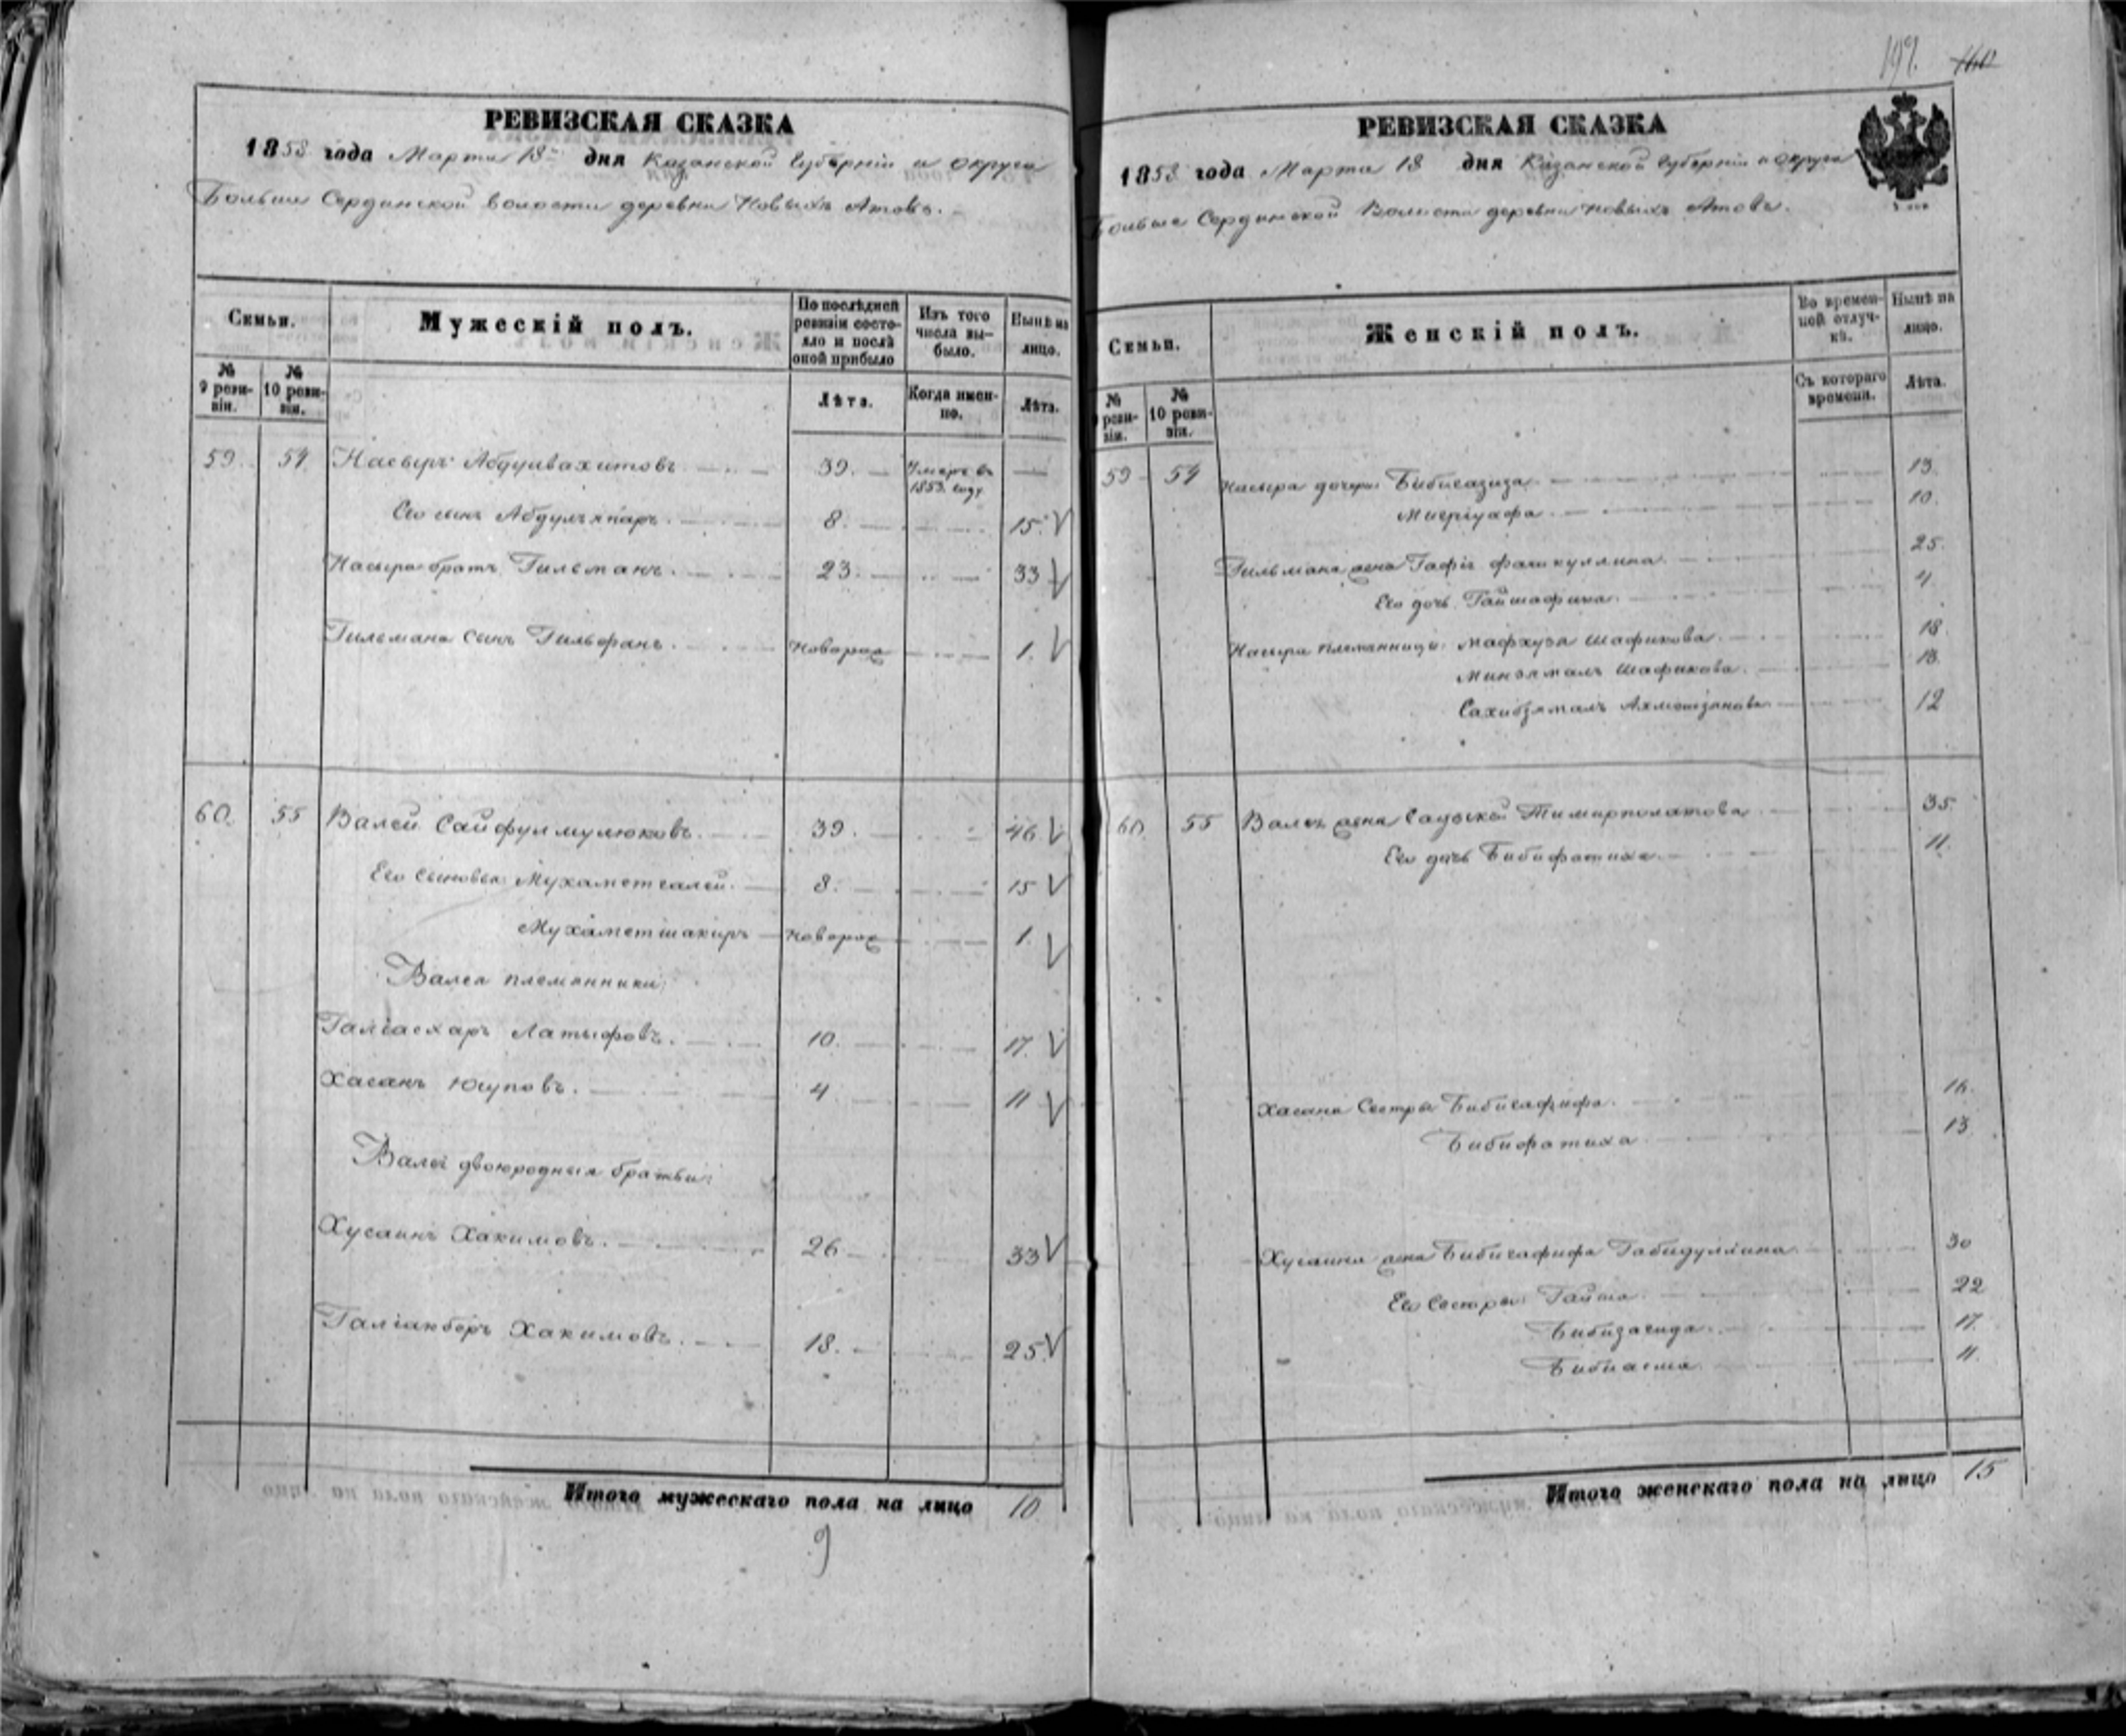 197. 160
РЕВИЗСКАЯ СКАЗКА
1858 года Марта 18 дня Казанской Губерніи и округа
Больше Сердинской волости деревни Новыхъ Атовъ.
Семьи.
Мужескій полъ.
По послѣдней ревизіи состояло и послѣ оной прибыло
Изъ того числа выбыло.
Нынѣ на лицо.
№ 9 ревизіи.
№ 10 ревизіи.
Лѣта.
Когда именно.
Лѣта.
59. 54. Насыръ Абдулвахитовъ 39. Умеръ въ 1853. году —
Его сынъ Абдулъяпаръ. 8. 15. V
Насыра братъ Гильманъ. 23. 33 V
Гильмана сынъ Гильфанъ. Новорож 1. V
60. 55 Валей Сайфулмулюковъ. 39. 46 V
Его Сыновья: Мухаметгалей. 8. 15 V
Мухаметшакиръ Новорож 1. V
Валея племянники:
Галіасхаръ Латыфовъ. 10. 17. V
Хасанъ Юсуповъ. 4 11 V
Валея двоюродныя братьи:
Хусаинъ Хакимовъ. 26 33 V
Галіакберъ Хакимовъ. 18. 25. V
Итого мужескаго пола на лицо 10.
9
РЕВИЗСКАЯ СКАЗКА
1858 года Марта 18 дня Казанской Губерніи и округа
Больше Сердинской Волости деревни Новыхъ Атовъ.
Семьи.
Женскій полъ.
Во временной отлучкѣ.
Нынѣ на лицо.
№ ревизіи.
№ 10 ревизіи.
Съ котораго времени.
Лѣта.
59 54 Насыра дочери: Бибигазиза 13.
10.
Гильмана жена Гафія Фаткуллина 25.
Его дочь 4.
Насыра племянницы: Мафхуза Шафикова. 18.
Минзямалъ Шафикова. 13.
Сахибзямалъ Ахметзянова 12
60. 55 Валея жена Тимирполатова 35
Его дочь Бибифатиха. 11.
Хасана Сестры Бибигафифа. 16.
Бибифатиха 13.
Хусаина жена Бибигафифа Габидуллина 30
Его Сестры: 22
Бибизагида. 17.
Бибиасма 11.
Итого женскаго пола на лицо 15